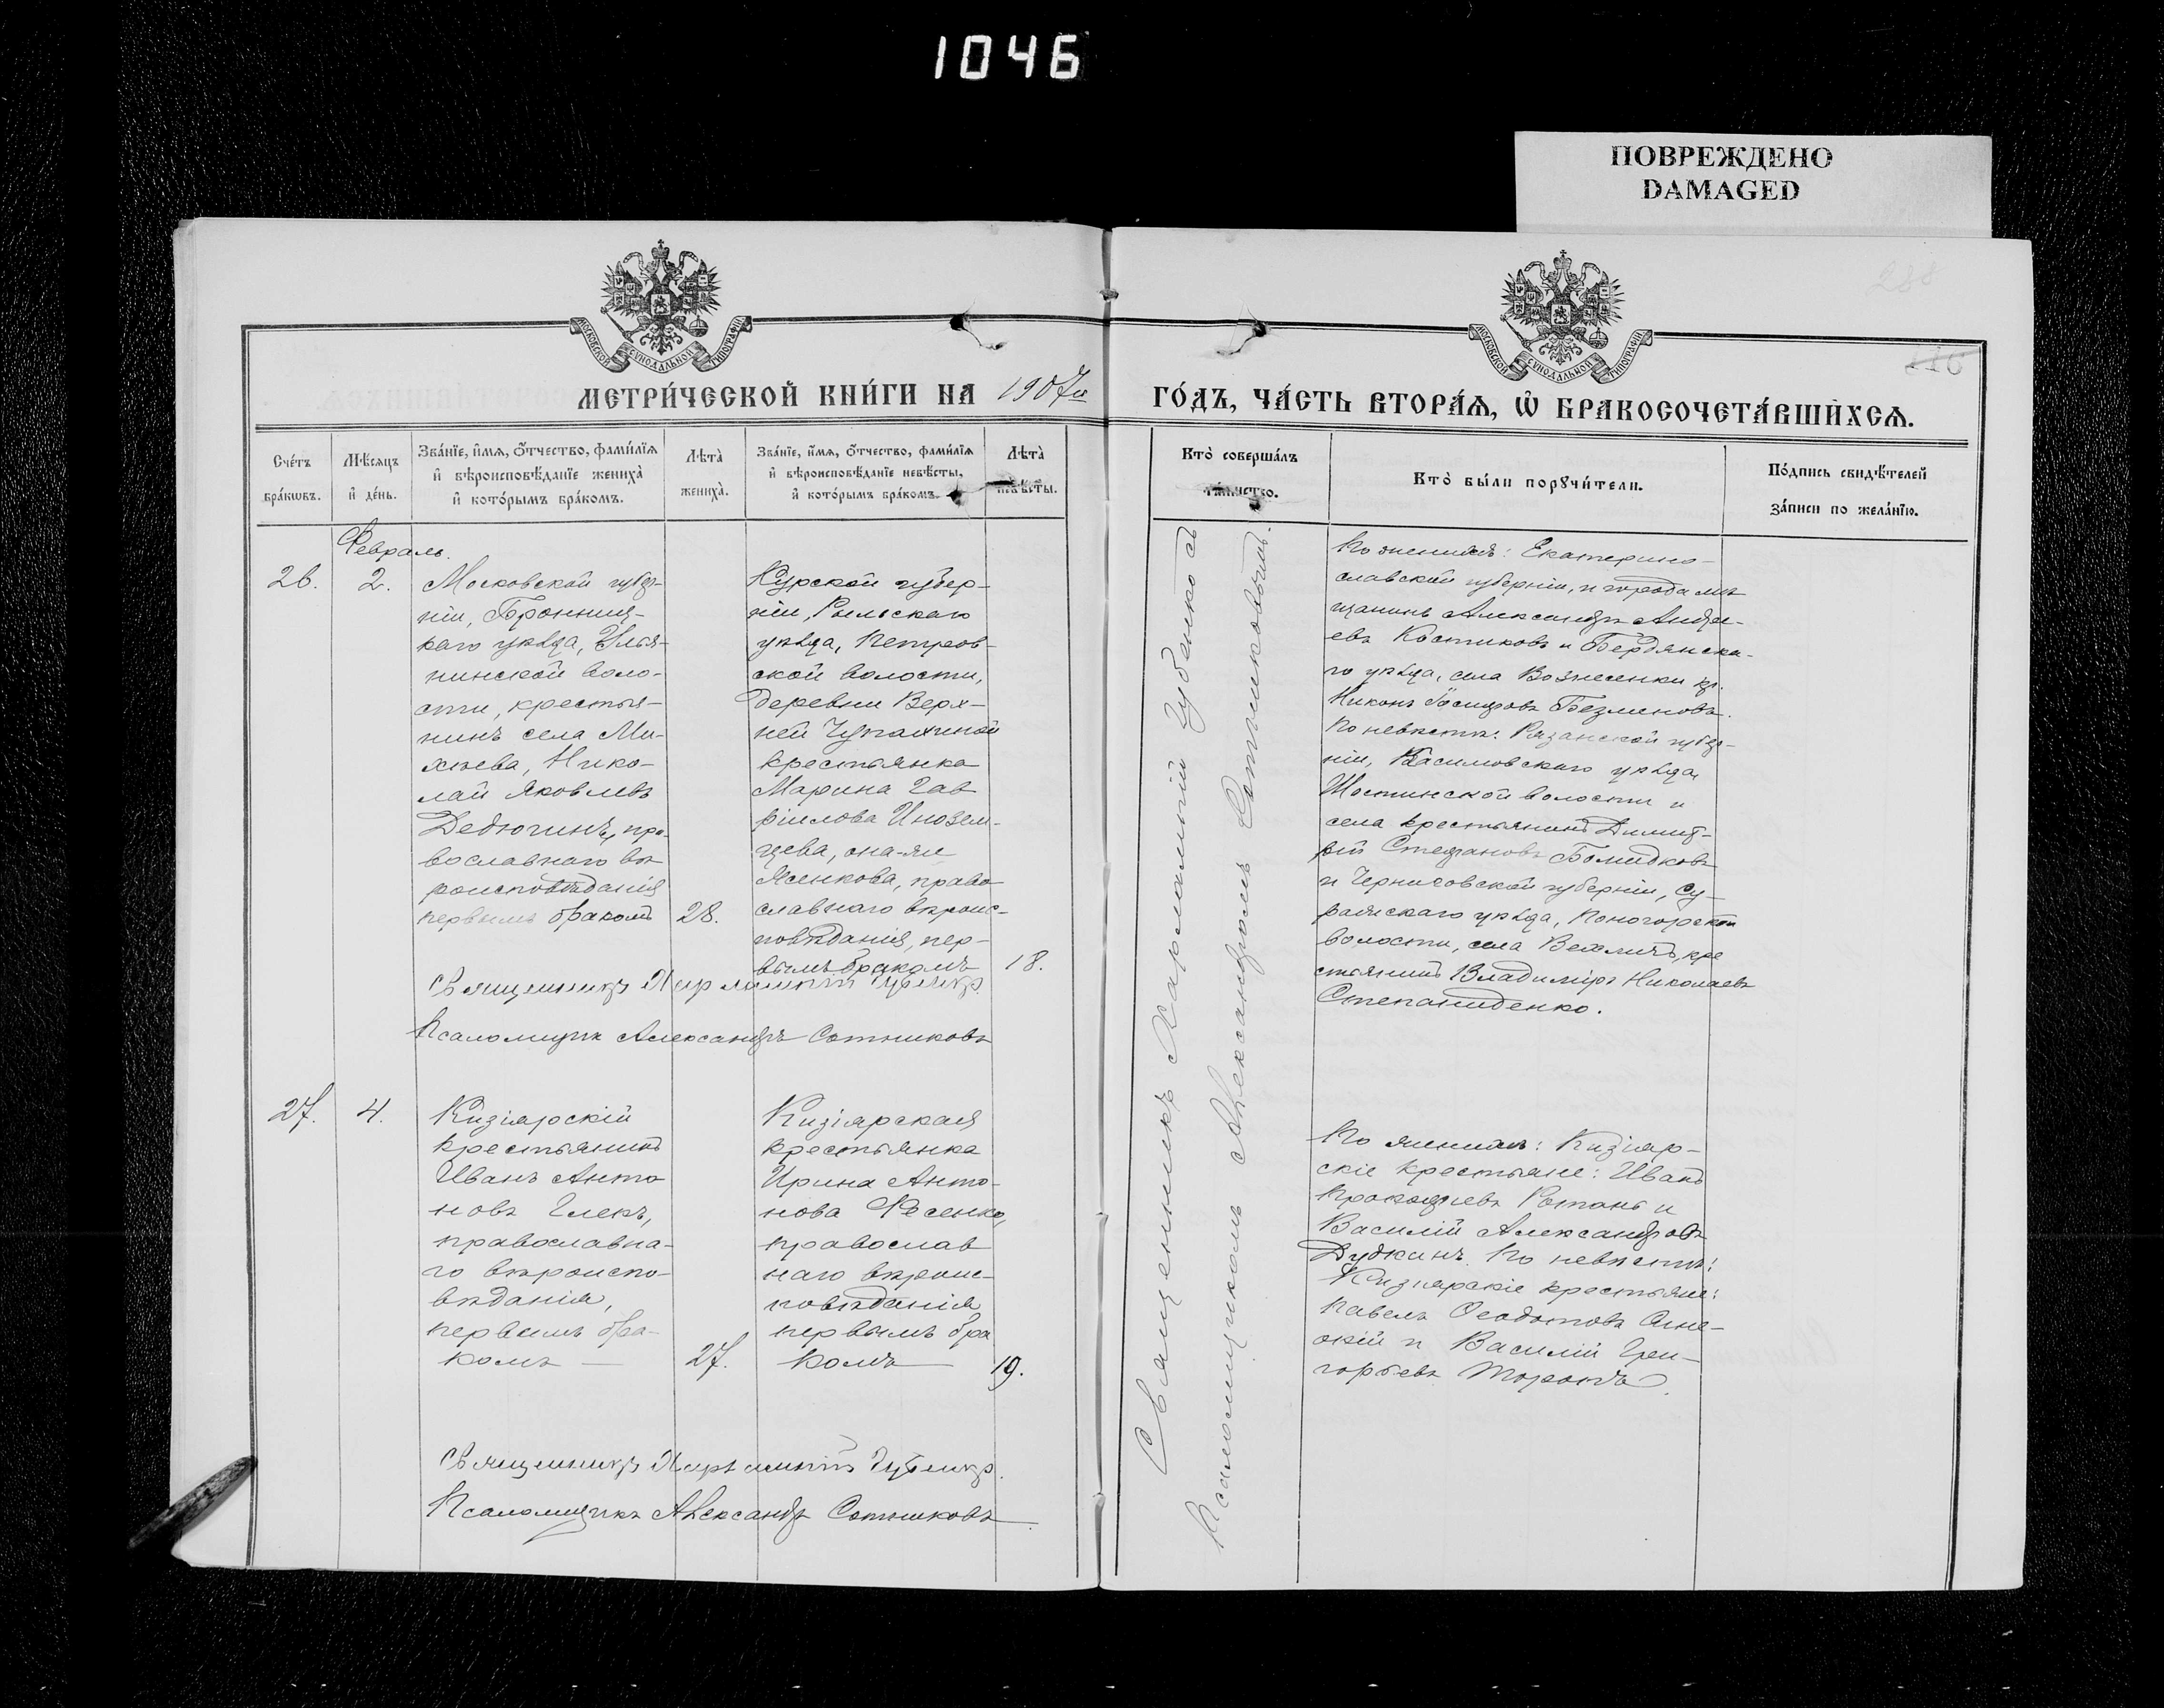 1046
ПОВРЕЖДЕНО
DAMAGED
288
МОСКОВСКОЙ СУНОДАЛЬНОЙ ТИПОГРАФІИ
МОСКОВСКОЙ СУНОДАЛЬНОЙ ТИПОГРАФІИ
МЕТРИ́ЧЕСКОЙ КНИ́ГИ НА 1907й ГО́ДЪ, ЧА́СТЬ ВТОРА́Я, Ѡ БРАКОСОЧЕТА́ВШИХСЯ.
Сче́тъ бра́кѡвъ.
Мѣ́сяцъ и де́нь.
Зва́нїе, и́мя, о́тчество, фами́лїя и вѣроисповѣ́данїе жениха̀ и кото́рымъ бра́комъ.
Лѣта̀ жениха̀.
Зва́нїе, и́мя, о́тчество, фами́лїя и вѣроисповѣ́данїе невѣ́сты, и кото́рымъ бра́комъ.
Лѣта̀ невѣ́сты.
Кто̀ соверша́лъ та́инство.
Кто̀ бы́ли порꙋчи́тели.
По́дпись свидѣ́телей за́писи по жела́нїю.
Февраль.
26.
2.
Московской губер-
ніи, Бронниц-
каго уѣзда, Улья-
нинской воло-
сти, крестья-
нинъ села Ми-
хѣева, Нико-
лай Яковлевъ
Дедюгинъ, пра-
вославнаго вѣ-
роисповѣданія
первымъ бракомъ
28.
Курской губер-
ніи, Рыльскаго
уѣзда, Петров-
ской волости,
деревни Верх-
ней Чупахиной
крестьянка
Марина Гав
ріилова Инозем-
цева, она-же
Ясенкова, право
славнаго вѣроис-
повѣданія, пер-
вымъ бракомъ
18.
Священникъ Харлампій Губенко
Псаломщикъ Александръ Сотниковъ
Священникъ Харлампій Губенко съ
Псаломщикомъ Александромъ Сотниковымъ.
По женихѣ: Екатерино-
славской губерніи, и города мѣ
щанинъ Александръ Андре-
евъ Костиковъ и Бердянска-
го уѣзда, села Вознесенки кр.
Никонъ Іосифовъ Безменовъ.
По невѣстѣ: Рязанской губер-
ніи, Касимовскаго уѣзда
Шостинской волости и
села крестьянинъ Димит-
рій Стефановъ
и Черниговской губерніи, Су-
ражскаго уѣзда,
волости, села кре
стьянинъ Владиміръ Николаевъ
Степаниденко.
27.
4.
Кизіярскій
крестьянинъ
Иванъ Анто
новъ Глекъ,
православна-
го вѣроиспо-
вѣданія,
первымъ бра-
комъ —
27.
Кизіярская
крестьянка
Ирина Анто-
нова Фесенко,
православ
наго вѣроис-
повѣданія
первымъ бра
комъ
19.
По женихѣ: Кизіяр-
скіе крестьяне: Иванъ
Прокофіевъ Ротань и
Василій Александровъ
Дудкинъ. По невѣстѣ:
Кизіярскіе крестьяне:
Павелъ Феодотовъ
и Василій Гри-
горьевъ
Священникъ Харлампій Губенко.
Псаломщикъ Александръ Сотниковъ